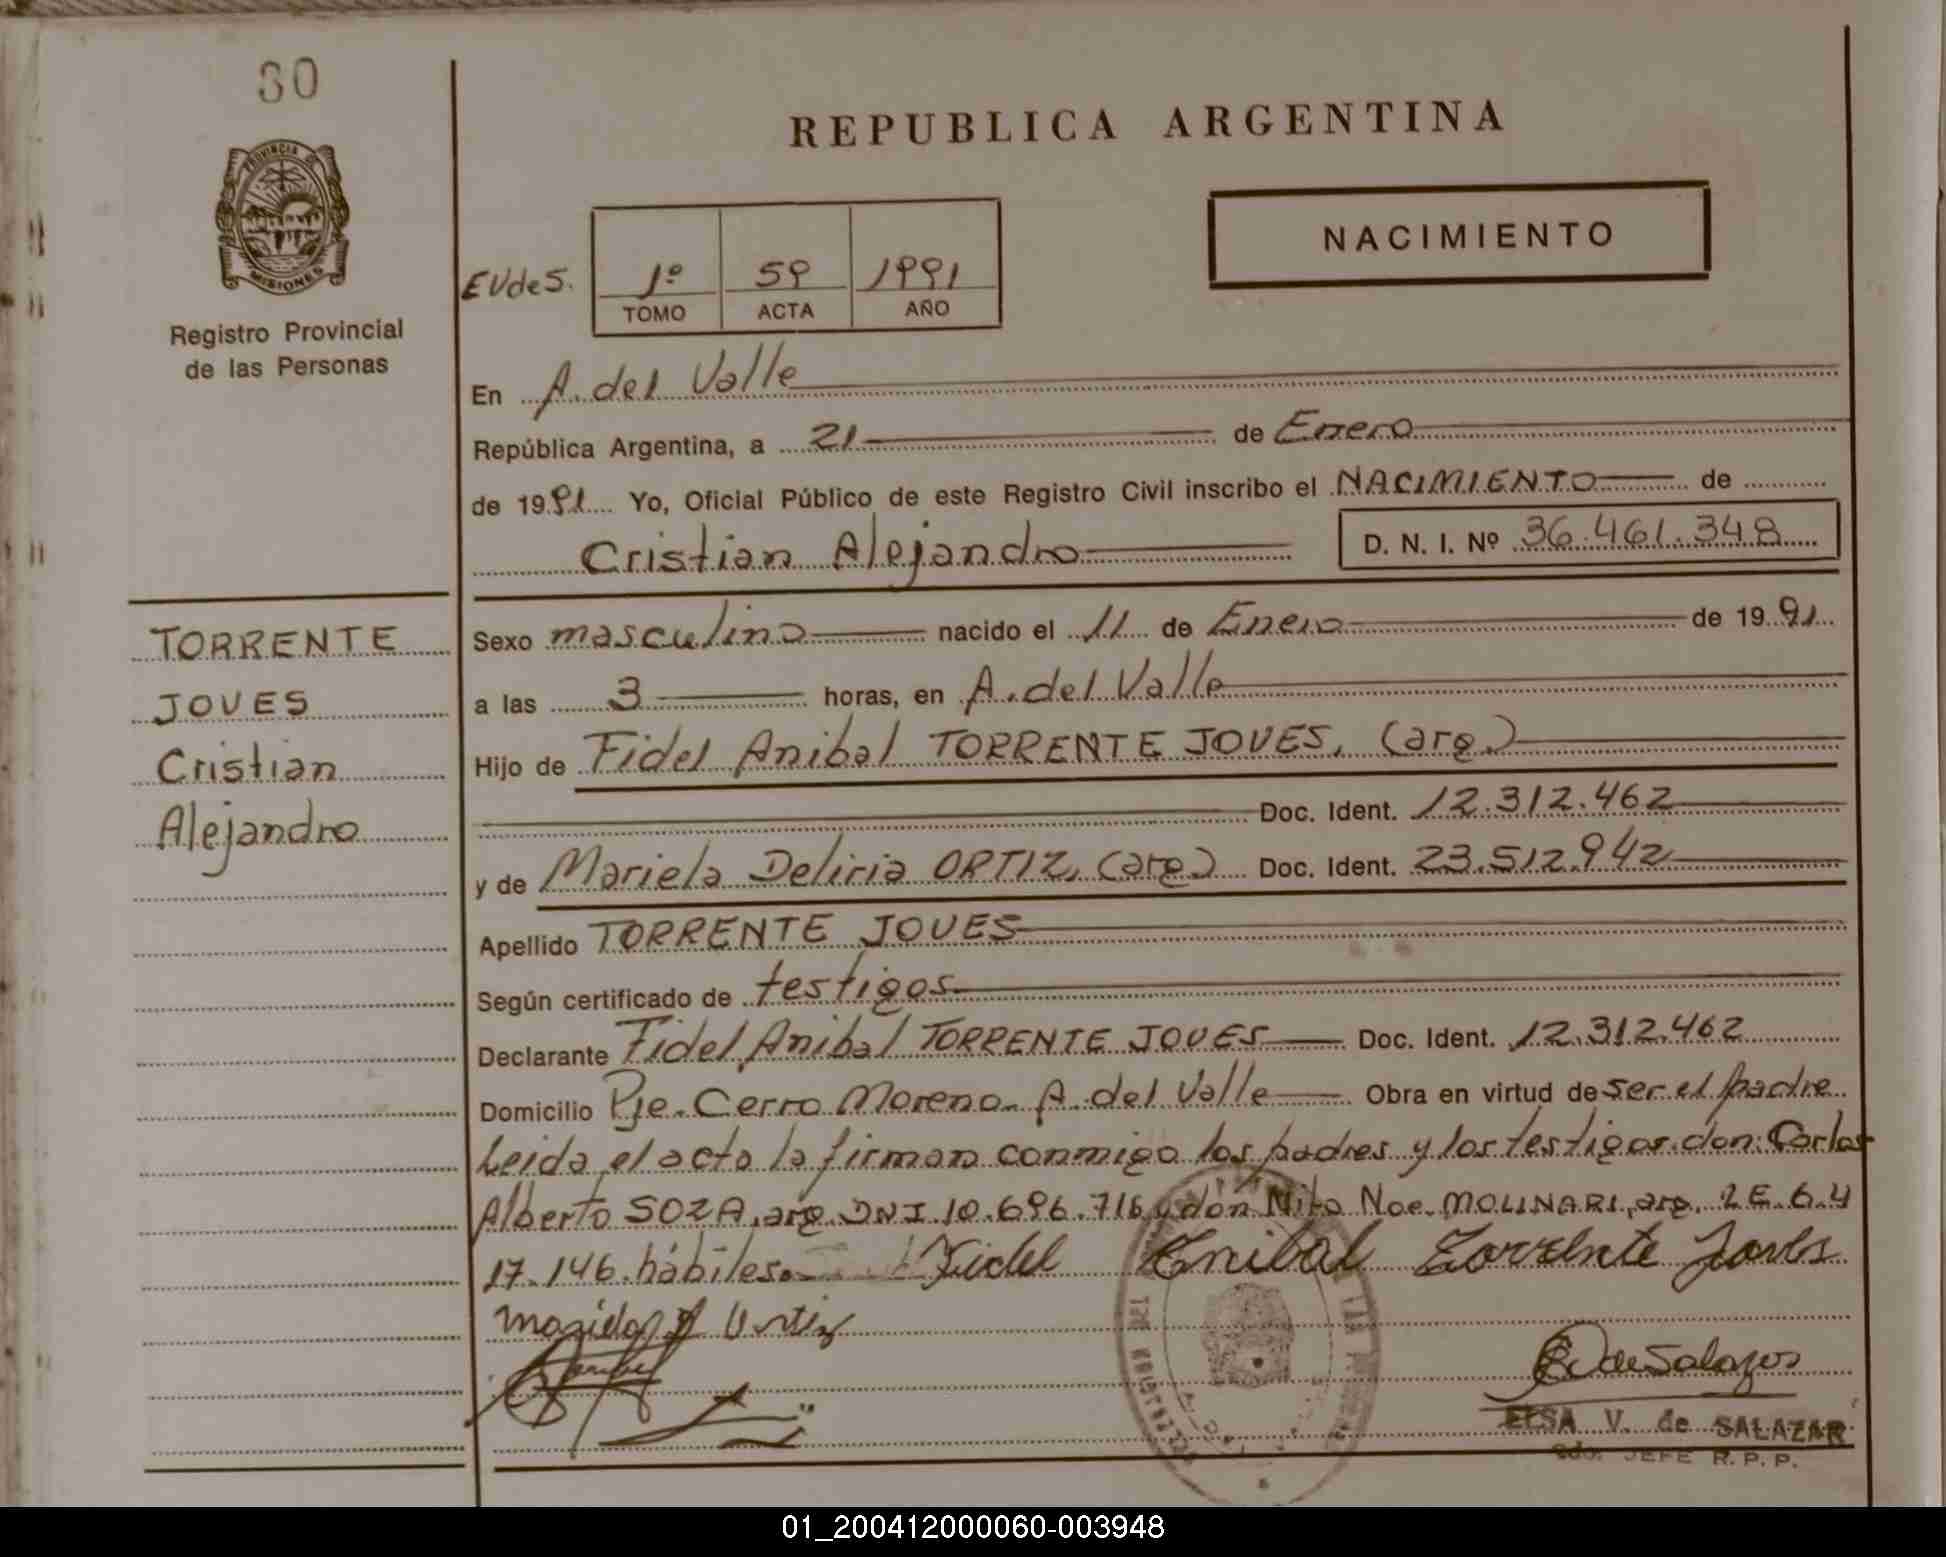 30
PROVINCIA DE
MISIONES
Registro Provincial
de las Personas
REPUBLICA ARGENTINA
NACIMIENTO
EVdeS.
1º 59 1991
TOMO ACTA AÑO
En A. del Valle
República Argentina, a 21 de Enero
de 1991 Yo, Oficial Público de este Registro Civil inscribo el NACIMIENTO de
Cristian Alejandro D. N. I. Nº 36.461.348
TORRENTE
JOVES
Cristian
Alejandro
Sexo masculino nacido el 11 de Enero de 1991
a las 3 horas, en A. del Valle
Hijo de Fidel Anibal TORRENTE JOVES, (arg.)
Doc. Ident. 12.312.462
y de Mariela Deliria ORTIZ, (arg) Doc. Ident. 23.512.942
Apellido TORRENTE JOVES
Según certificado de testigos
Declarante Fidel Anibal TORRENTE JOVES Doc. Ident. 12.312.462
Domicilio Pje. Cerro Moreno. A. del Valle Obra en virtud de ser el padre
Leida el acta la firman conmigo los padres y los testigos don: Carlos
Alberto SOZA, arg. DNI 10.696.716 y don Nito Noe MOLINARI, arg. LE. 6.4
17.146. hábiles. Fidel Anibal Torrente Joves
Ortiz
de Salazar
ELSA V. de SALAZAR
JEFE R.P.P.
01_200412000060-003948